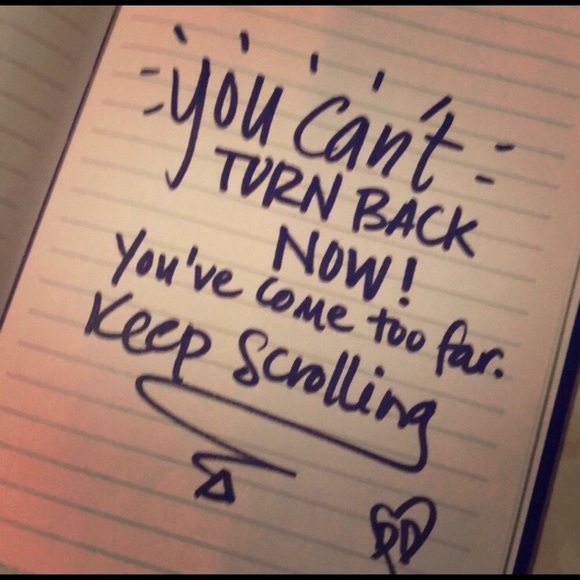 you can't
TURN BACK
NOW!
You've come too far.
Keep Scrolling